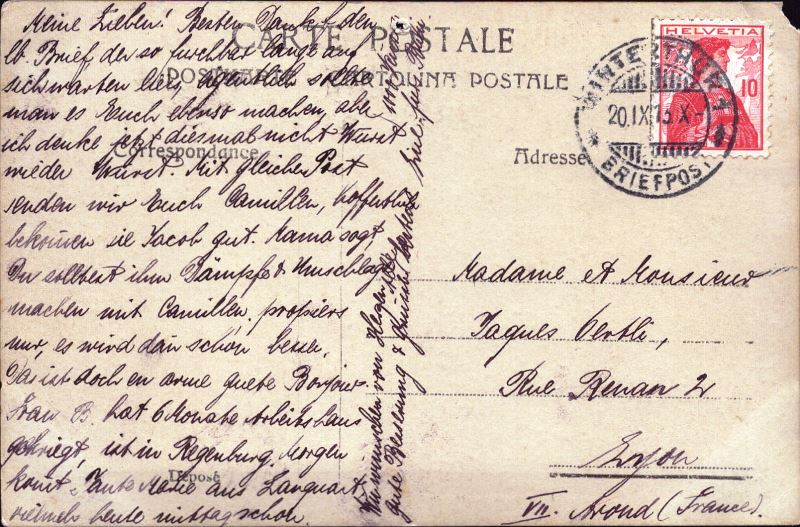 CARTE POSTALE
POSTKARTE CARTOLINA POSTALE
Correspondance
Adresse
HELVETIA
10
WINTERTHUR 1
20.IX.13.X
BRIEFPOST
Meine Lieben! Besten Dank f. den
lb. Brief, der so furchbar lange auf
sich warten lies, eigentlich sollte
man es Euch ebenso machen, aber
ich denke jetzt diesmal nicht Wurst
wieder Wurst. Mit gleicher Post
senden wir Euch Camillen, hoffentlich
bekomen sie Jacob gut. Mama sagt,
Du solltest ihm Dämpfe & Umschläge
machen mit Camillen, propiers
nur, es wird dan schon besser.
Das ist doch en arme guete Bonjour
Frau B. hat 6 Monate Arbeitshaus
gekriegt, ist in Regenburg. Morgen
komt Tante Marie aus Languart
vielmeh heute mittag schon.
Wir wünschen von Herzen
gute Besserung &
Madame et Monsieur
Jaques Oertli,
Rue Renan 2
Lyon
VII. Arond (France).
Déposé